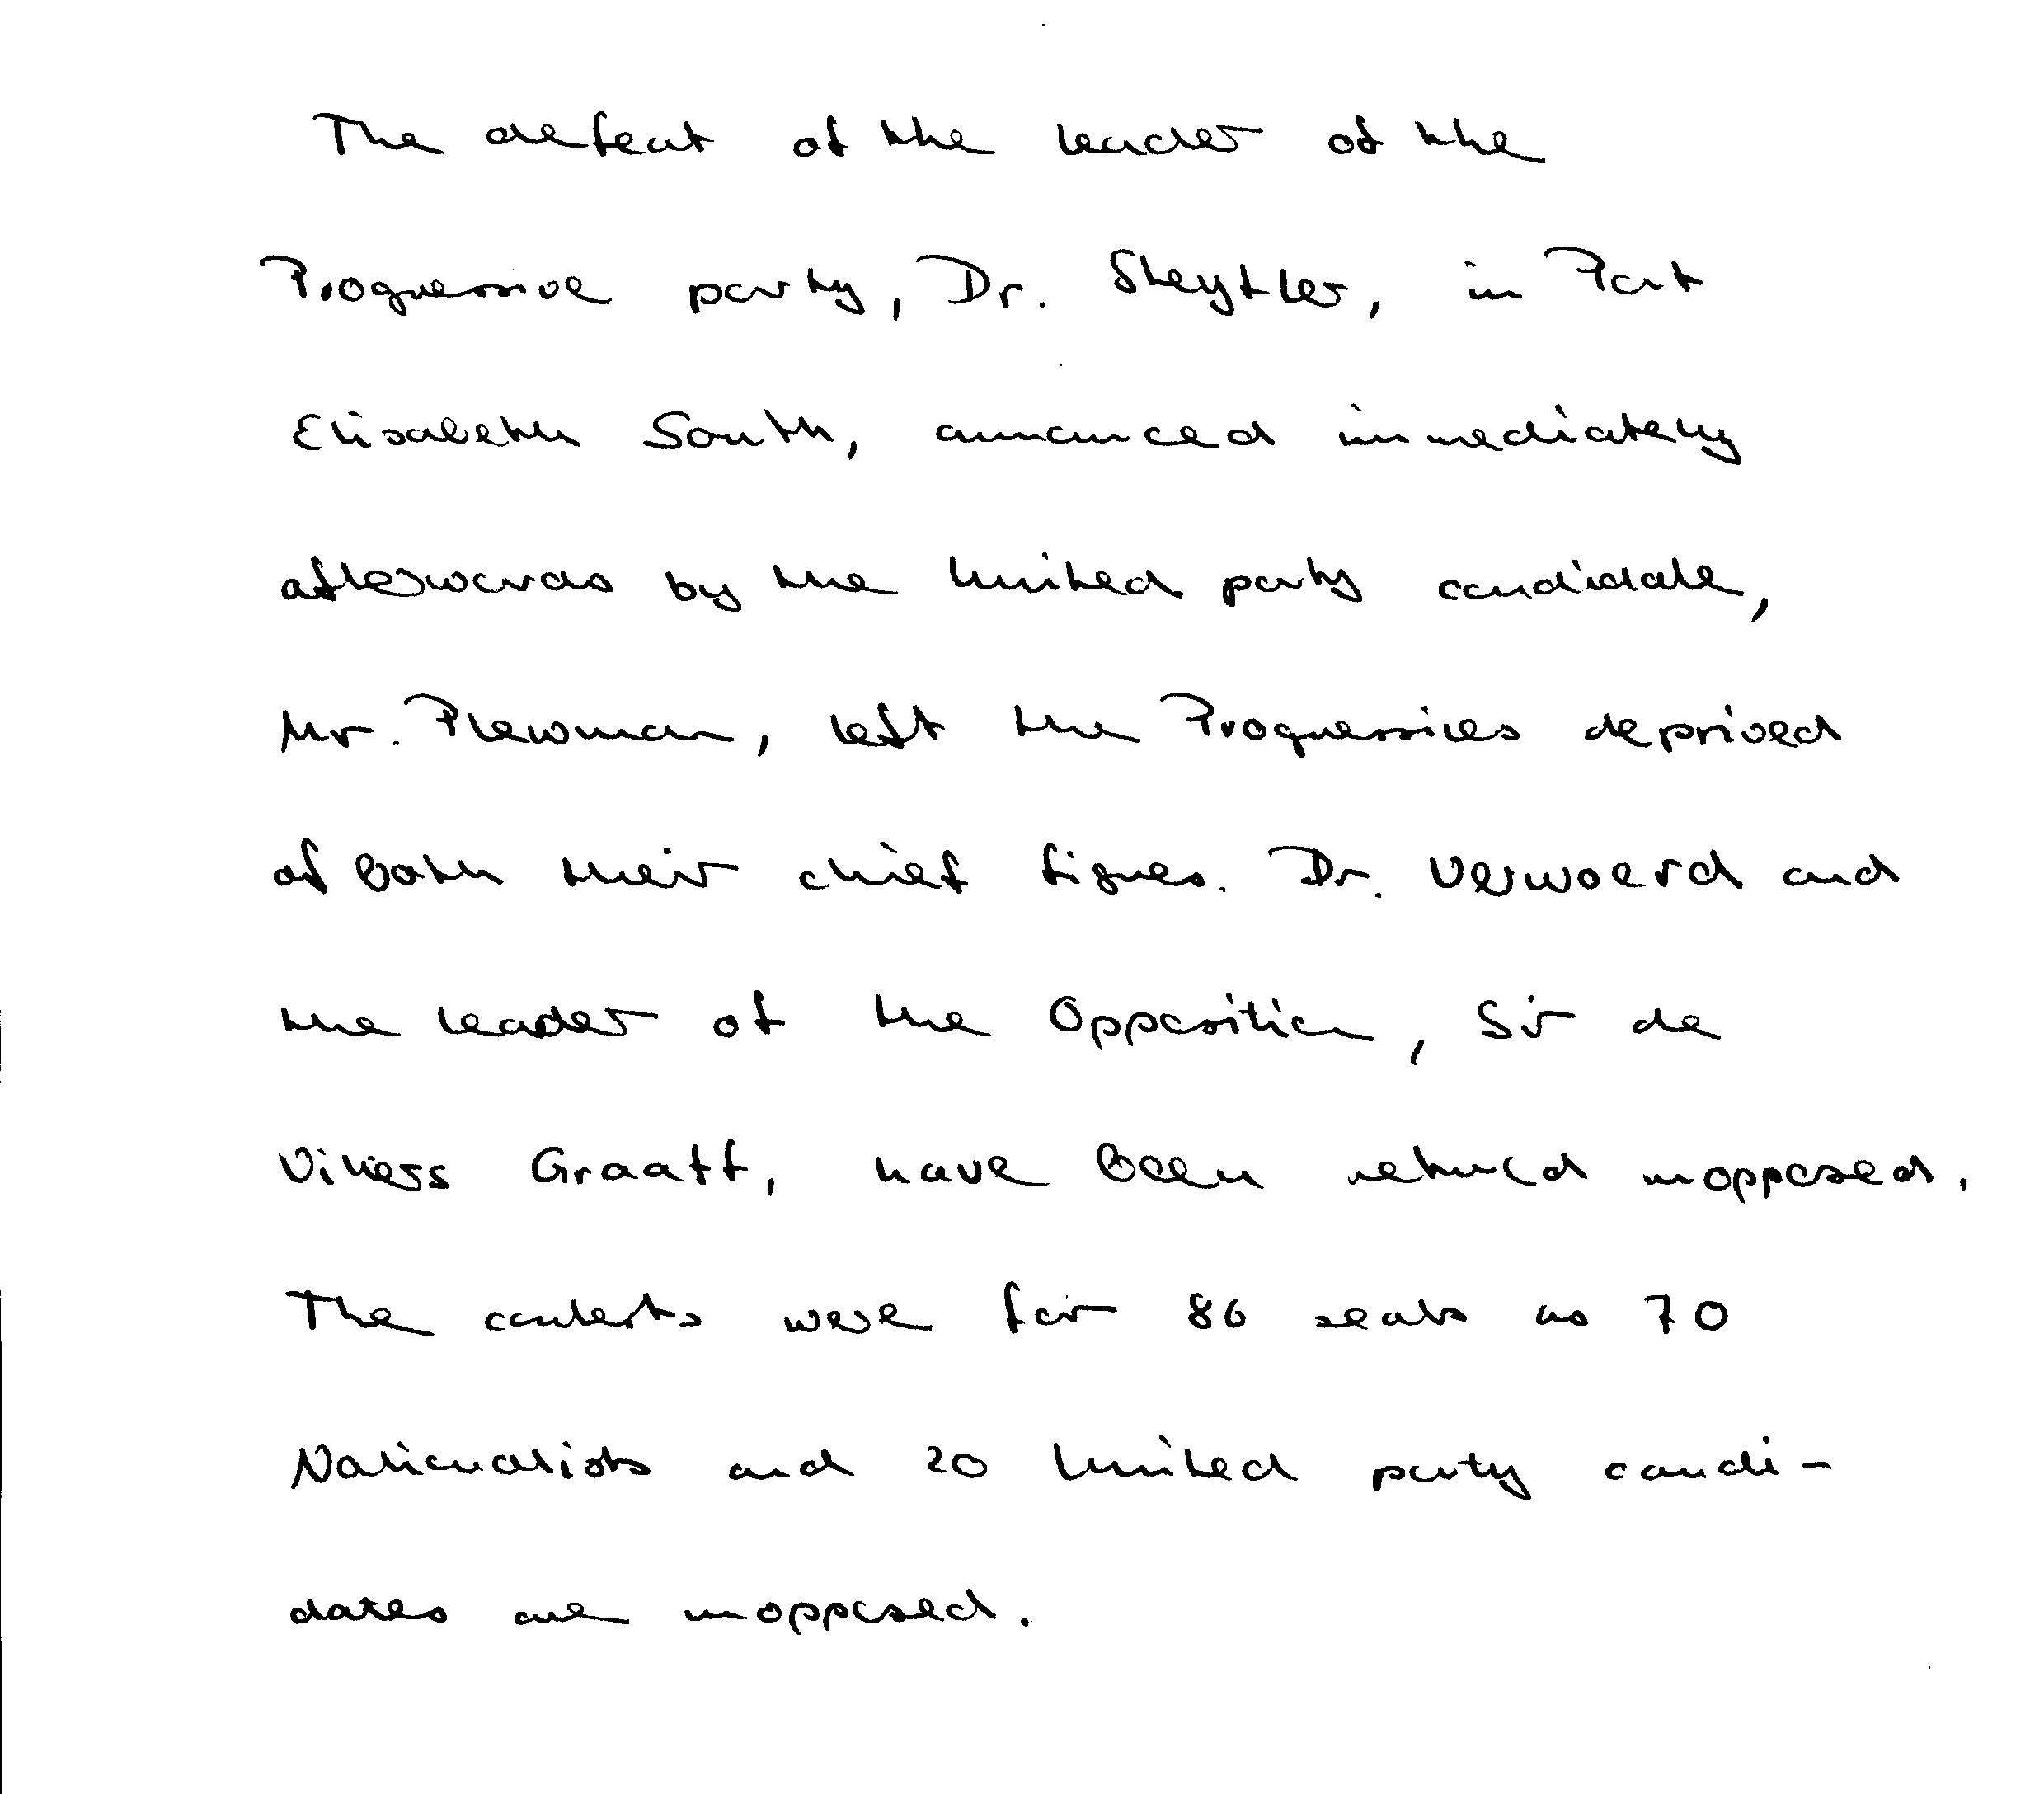 The defeat of the leader of the
Progressive party, Dr. Steytler, in Port
Elisabeth South, announced immediately
afterwards by the United party candidate,
Mr. Plewman, left the Progressives deprived
of both their chief figures. Dr. Verwoerd and
the leader of the Opposition, Sir de
Viliers Graaff, have been returned unopposed.
The contests were for 86 seats as 70
Nationalists and 20 United party candi-
dates are unopposed.